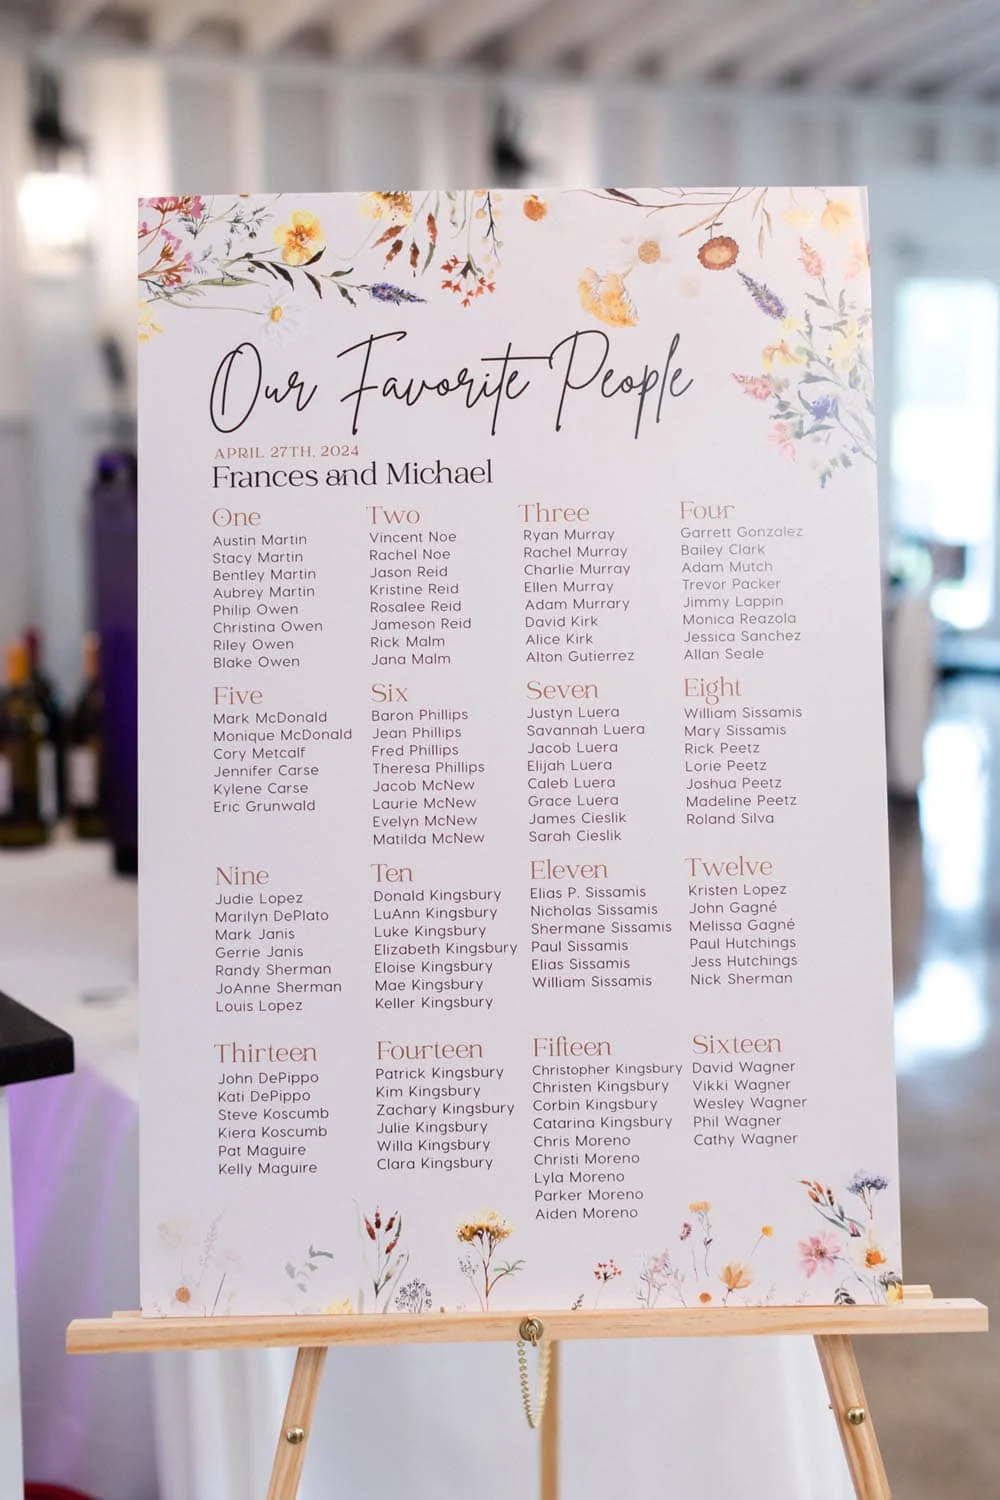 Our Favorite People
APRIL 27TH, 2024
Frances and Michael
One
Austin Martin
Stacy Martin
Bentley Martin
Aubrey Martin
Philip Owen
Christina Owen
Riley Owen
Blake Owen
Two
Vincent Noe
Rachel Noe
Jason Reid
Kristine Reid
Rosalee Reid
Jameson Reid
Rick Malm
Jana Malm
Three
Ryan Murray
Rachel Murray
Charlie Murray
Ellen Murray
Adam Murrary
David Kirk
Alice Kirk
Alton Gutierrez
Four
Garrett Gonzalez
Bailey Clark
Adam Mutch
Trevor Packer
Jimmy Lappin
Monica Reazola
Jessica Sanchez
Allan Seale
Five
Mark McDonald
Monique McDonald
Cory Metcalf
Jennifer Carse
Kylene Carse
Eric Grunwald
Six
Baron Phillips
Jean Phillips
Fred Phillips
Theresa Phillips
Jacob McNew
Laurie McNew
Evelyn McNew
Matilda McNew
Seven
Justyn Luera
Savannah Luera
Jacob Luera
Elijah Luera
Caleb Luera
Grace Luera
James Cieslik
Sarah Cieslik
Eight
William Sissamis
Mary Sissamis
Rick Peetz
Lorie Peetz
Joshua Peetz
Madeline Peetz
Roland Silva
Nine
Judie Lopez
Marilyn DePlato
Mark Janis
Gerrie Janis
Randy Sherman
JoAnne Sherman
Louis Lopez
Ten
Donald Kingsbury
LuAnn Kingsbury
Luke Kingsbury
Elizabeth Kingsbury
Eloise Kingsbury
Mae Kingsbury
Keller Kingsbury
Eleven
Elias P. Sissamis
Nicholas Sissamis
Shermane Sissamis
Paul Sissamis
Elias Sissamis
William Sissamis
Twelve
Kristen Lopez
John Gagné
Melissa Gagné
Paul Hutchings
Jess Hutchings
Nick Sherman
Thirteen
John DePippo
Kati DePippo
Steve Koscumb
Kiera Koscumb
Pat Maguire
Kelly Maguire
Fourteen
Patrick Kingsbury
Kim Kingsbury
Zachary Kingsbury
Julie Kingsbury
Willa Kingsbury
Clara Kingsbury
Fifteen
Christopher Kingsbury
Christen Kingsbury
Corbin Kingsbury
Catarina Kingsbury
Chris Moreno
Christi Moreno
Lyla Moreno
Parker Moreno
Aiden Moreno
Sixteen
David Wagner
Vikki Wagner
Wesley Wagner
Phil Wagner
Cathy Wagner